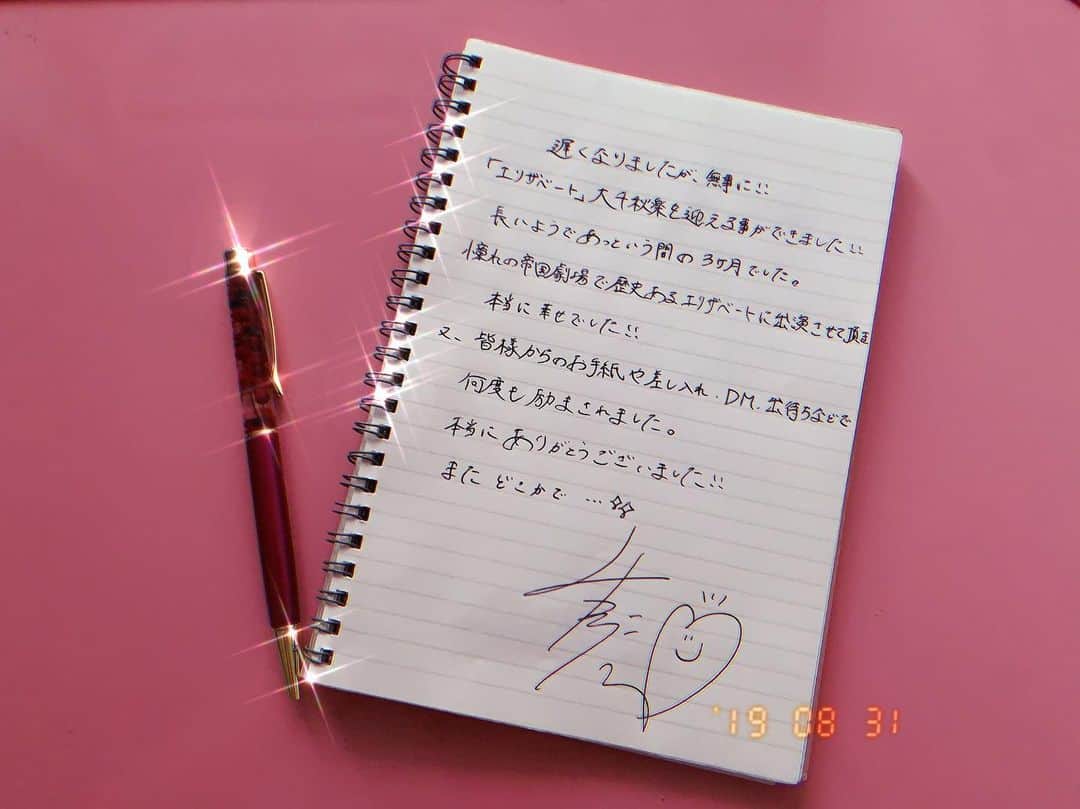 遅くなりましたが、無事に!!
「エリザベート」大千秋楽を迎える事ができました!!
長いようであっという間の3ヶ月でした。
憧れの帝国劇場で歴史あるエリザベートに出演させて頂き
本当に幸せでした!!
又、皆様からのお手紙や差し入れ、DM、出待ちなどで
何度も励まされました。
本当にありがとうございました!!
また どこかで …
'19 08 31